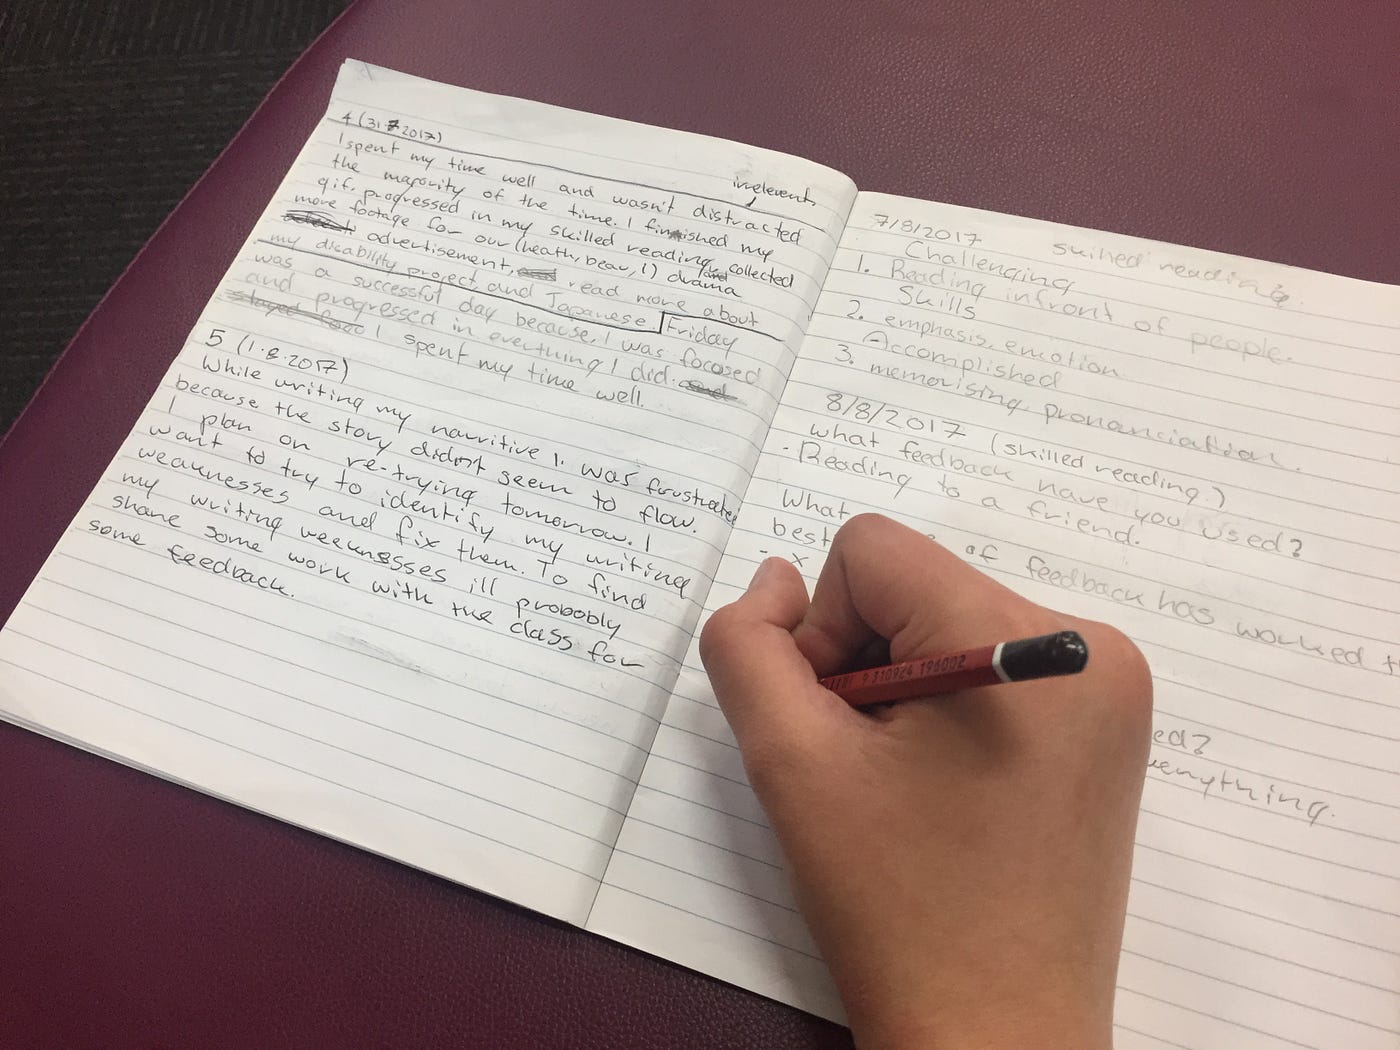 4 (31.7.2017)
irrelevent
I spent my time well and wasn't distracted
the majority of the time. I finished my
gif, progressed in my skilled reading, collected
more footage for our (heath, beau, I) drama
advertisement, and read more about
my disability project and Japanese. Friday
was a successful day because, I was focosed
and progressed in everthing I did.
I spent my time well.
5 (1.8.2017)
While writing my narritive I was frustrated
because the story didn't seem to flow.
I plan on re-trying tomorrow. I
want to try to identify my writing
weaknesses and fix them. To find
my writing weeknesses ill probobly
share some work with the class for
some feedback.
7/8/2017 skilled reading.
Challenging
1. Reading infront of people.
Skills
2. emphasis, emotion
Accomplished
3. memorising, pronounciation.
8/8/2017 (skilled reading.)
what feedback have you used?
- Reading to a friend.
What
best of feedback has worked
- x
ed?
everything.
9 310924 196002